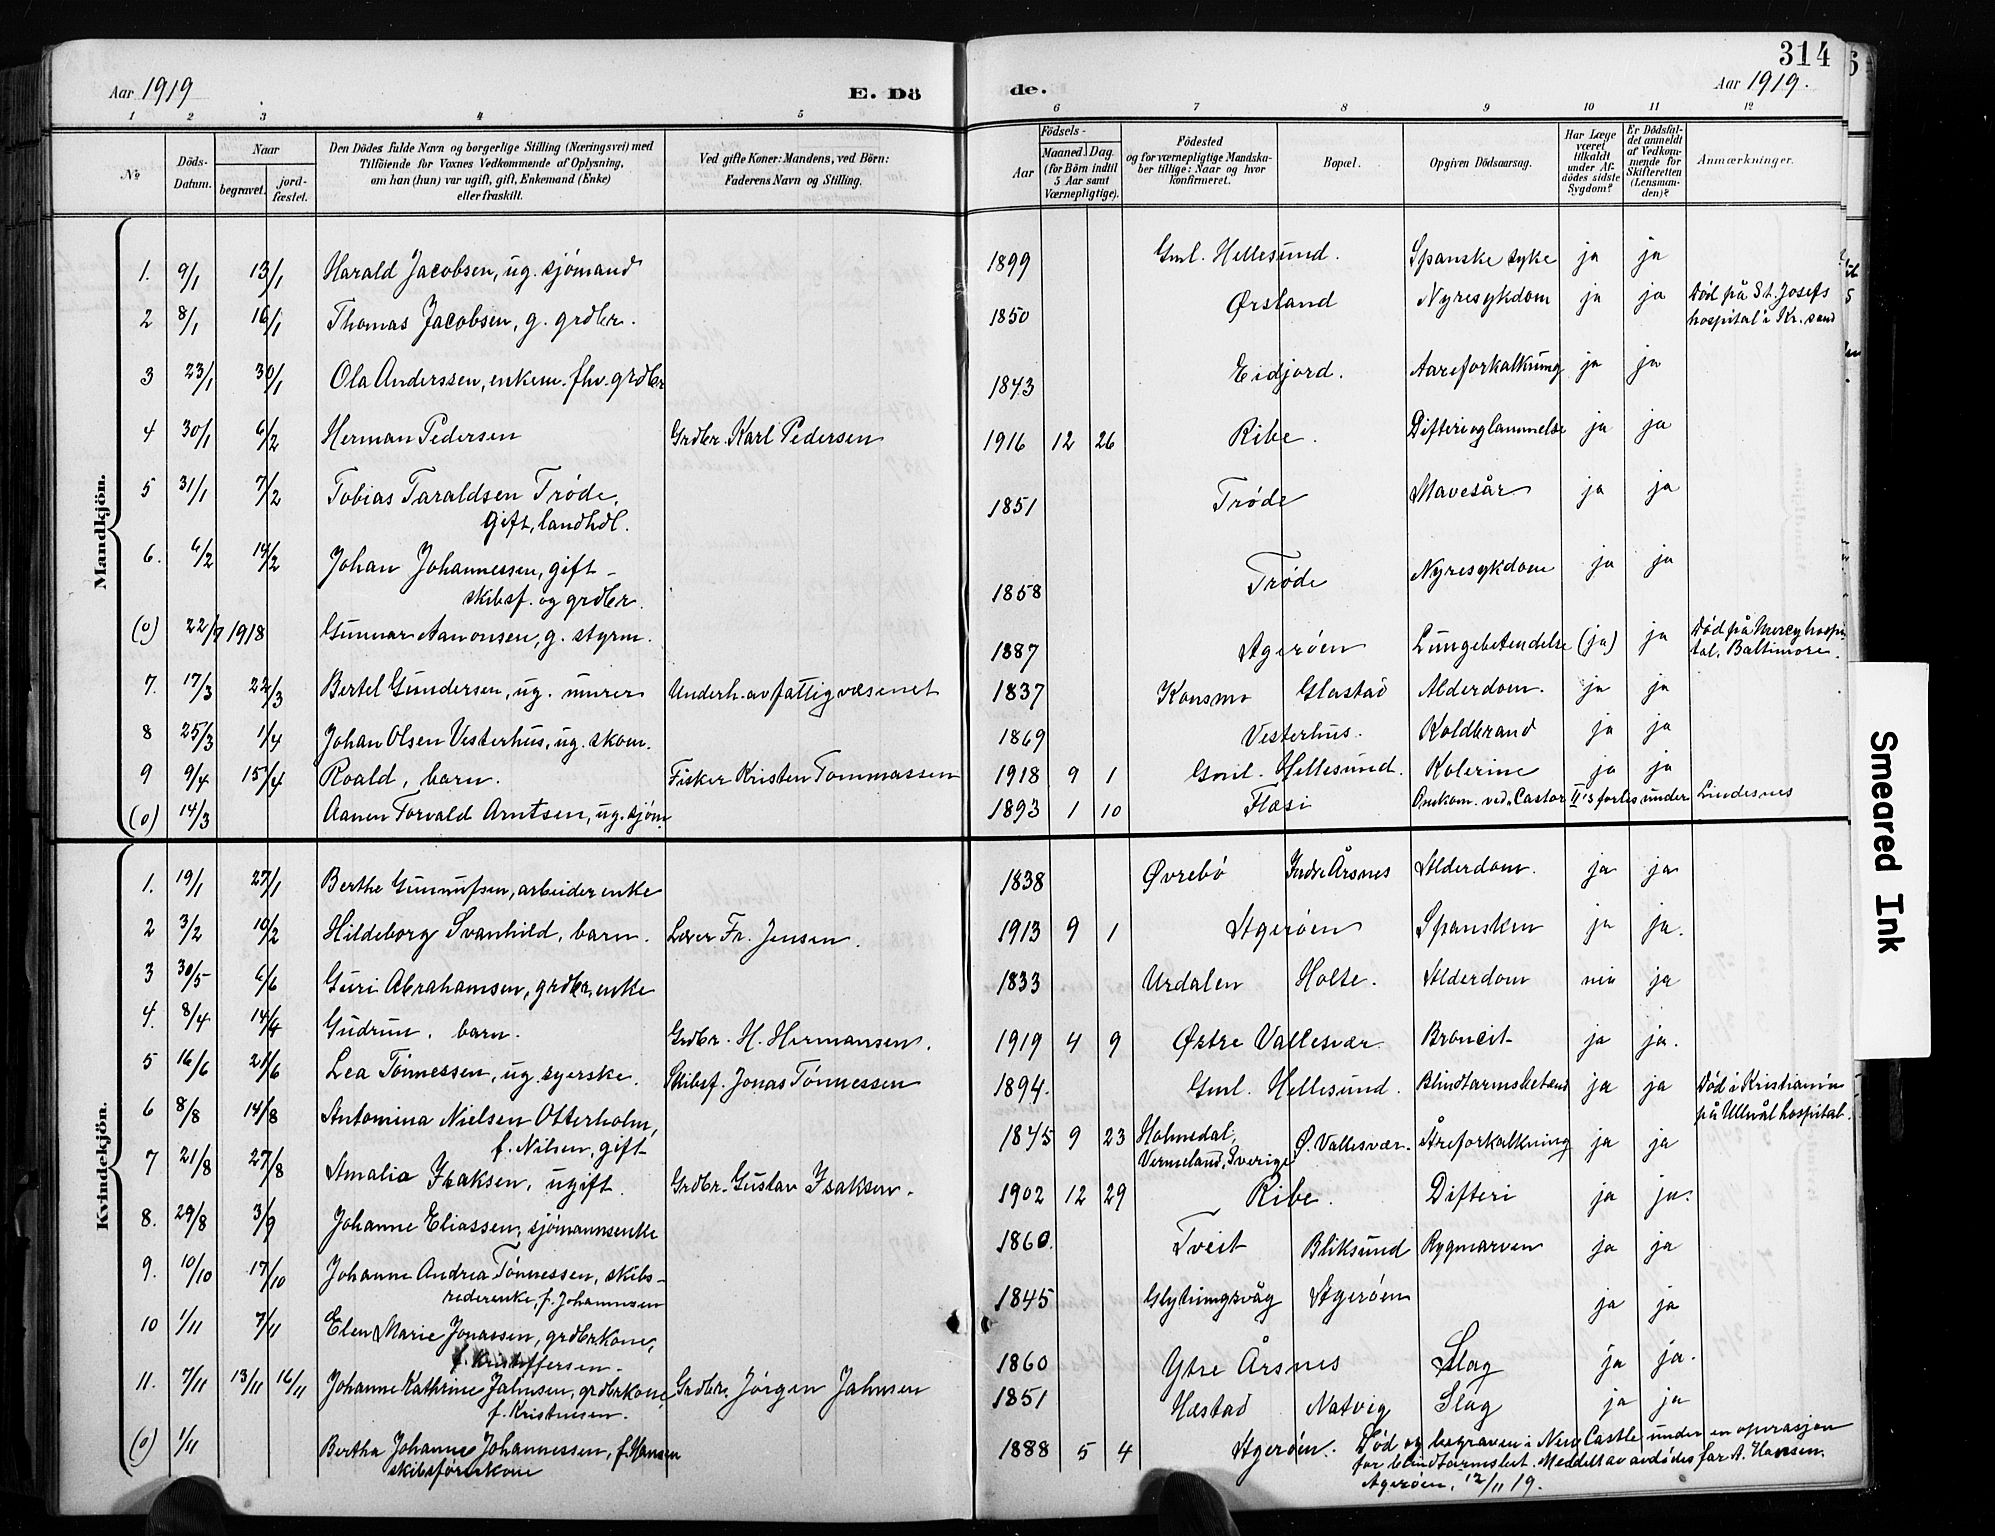 314
Aar 1919
E. Dö
de.
Aar 1919.
1 2 3 4 5 6 7 8 9 10 11 12
No
Döds-Datum.
Naar
begravet.
jord-fæstet.
Den Dödes fulde Navn og borgerlige Stilling (Næringsvei) med
Tilföiende for Voxnes Vedkommende af Oplysning,
om han (hun) var ugift, gift, Enkemand (Enke)
eller fraskilt.
Ved gifte Koner: Mandens, ved Börn:
Faderens Navn og Stilling.
Födsels-
Aar
Maaned. Dag.
(for Börn indtil
5 Aar samt
Værnepligtige).
Födested
og for værnepligtige Mandska-
ber tillige: Naar og hvor
konfirmeret.
Bopæl.
Opgiven Dödsaarsag.
Har Læge
været
tilkaldt
under Af-
dödes sidste
Sygdom?
Er Dödsfal-
det anmeldt
af Vedkom-
mende for
Skifteretten
(Lensman-
den)?
Anmærkninger.
Mandkjön.
1. 9/1 13/1 Harald Jacobsen, ug. sjömand 1899 Gml. Hellesund. Spanske syke ja ja
2 8/1 16/1 Thomas Jacobsen, g. grdbr. 1850 Ørsland Nyresykdom ja ja Död på St. Josefs
hospital i Kr. sand
3 23/1 30/1 Ola Anderssen, enkem. fhv. grdbr 1843 Eidjord. Aareforkalkning ja ja
4 30/1 6/2 Herman Pedersen Grdbr. Karl Pedersen 1916 12 26 Ribe. Difteri og lammelse ja ja
5 31/1 7/2 Tobias Taraldsen Trøde. 1851 Trøde Mavesår ja ja
gift, landhdl.
6. 6/2 14/2 Johan Johannessen, gift 1858 Trøde Nyresykdom ja ja
skibsf. og grdbr.
(0) 22/9 1918 Gunnar Aanonsen, g. styrm. 1887 Agerøen Lungebetendelse (ja) ja Död på Mercy hospi-
tal, Baltimore.
7. 17/3 22/3 Bertel Gundersen, ug. murer Underh. av fattigvæsenet 1837 Konsmo Glastad Alderdom. ja ja
8 25/3 1/4 Johan Olsen Vesterhus, ug. skom. 1869 Vesterhus. Koldbrand ja ja
9 9/4 15/4 Roald, barn. Fisker Kristen Tommassen 1918 9 1 Gml. Hellesund. Kolerine ja ja
(0) 14/3 Aanen Torvald Arntsen, ug. sjöm. 1893 1 10 Flæsi Omkom. ved "Castor II's forlis under Lindesnes
Kvindekjön.
1. 19/1 27/1 Berthe Gunnufsen, arbeiderenke 1838 Øvrebö Indre Årsnes Alderdom. ja ja
2 3/2 10/2 Hildeborg Svanhild, barn. Lærer Fr. Jensen. 1913 9 1 Agerøen Spansken ja ja.
3 30/5 6/6 Guri Abrahamsen, grdbr.enke 1833 Urdalen Holte. Alderdom nei ja
4. 8/4 14/4 Gudrun. barn. Grdbr. H. Hermansen. 1919 4 9 Østre Vallesvær. Broncit ja ja.
5 16/6 21/6 Lea Tönnessen, ug. syerske. Skibsf. Jonas Tönnessen 1894. Gml. Hellesund. Blindtarmsbetend ja ja Död i Kristiania
på Ullevål hospital.
6 8/8 14/8 Antomina Nielsen Otterholm, 1845 9 23 Holmsdal, Ø. Vallesvær. Åreforkalkning ja ja
f. Nilsen, gift Vermeland, Sverige
7 21/8 27/8 Amalia Isaksen, ugift. Grdbr. Gustav Isaksen. 1902 12 29 Ribe. Difteri ja ja.
8. 29/8 3/9 Johanne Eliassen, sjömannsenke 1860. Tveit Bliksund Rygmarven ja ja
9. 10/10 17/10 Johanne Andrea Tönnessen, skibs- 1845 Glytningsvåg Agerøen ja ja
rederenke, f. Johannsen
10 1/11 7/11 Elen Marie Jonassen, grdbrkone, 1860 Ytre Årsnes Slag ja ja.
f. Kristoffersen.
11. 7/11 13/11 16/11 Johanne Kathrine Jahnsen, grdbrkone, Grdbr. Jörgen Jahnsen 1851 Hæstad Natvig Slag ja ja
f. Kristensen.
(0) 1/11 Bertha Johanne Johannessen, f. Hansen 1888 5 4 Agerøen. Död og begraven i New Castle under en operasjon
skibsförerkone for blindtarmsbet. Meddelt av avdödes far A. Hansen.
Agerøen, 12/11 19.
Smeared Ink